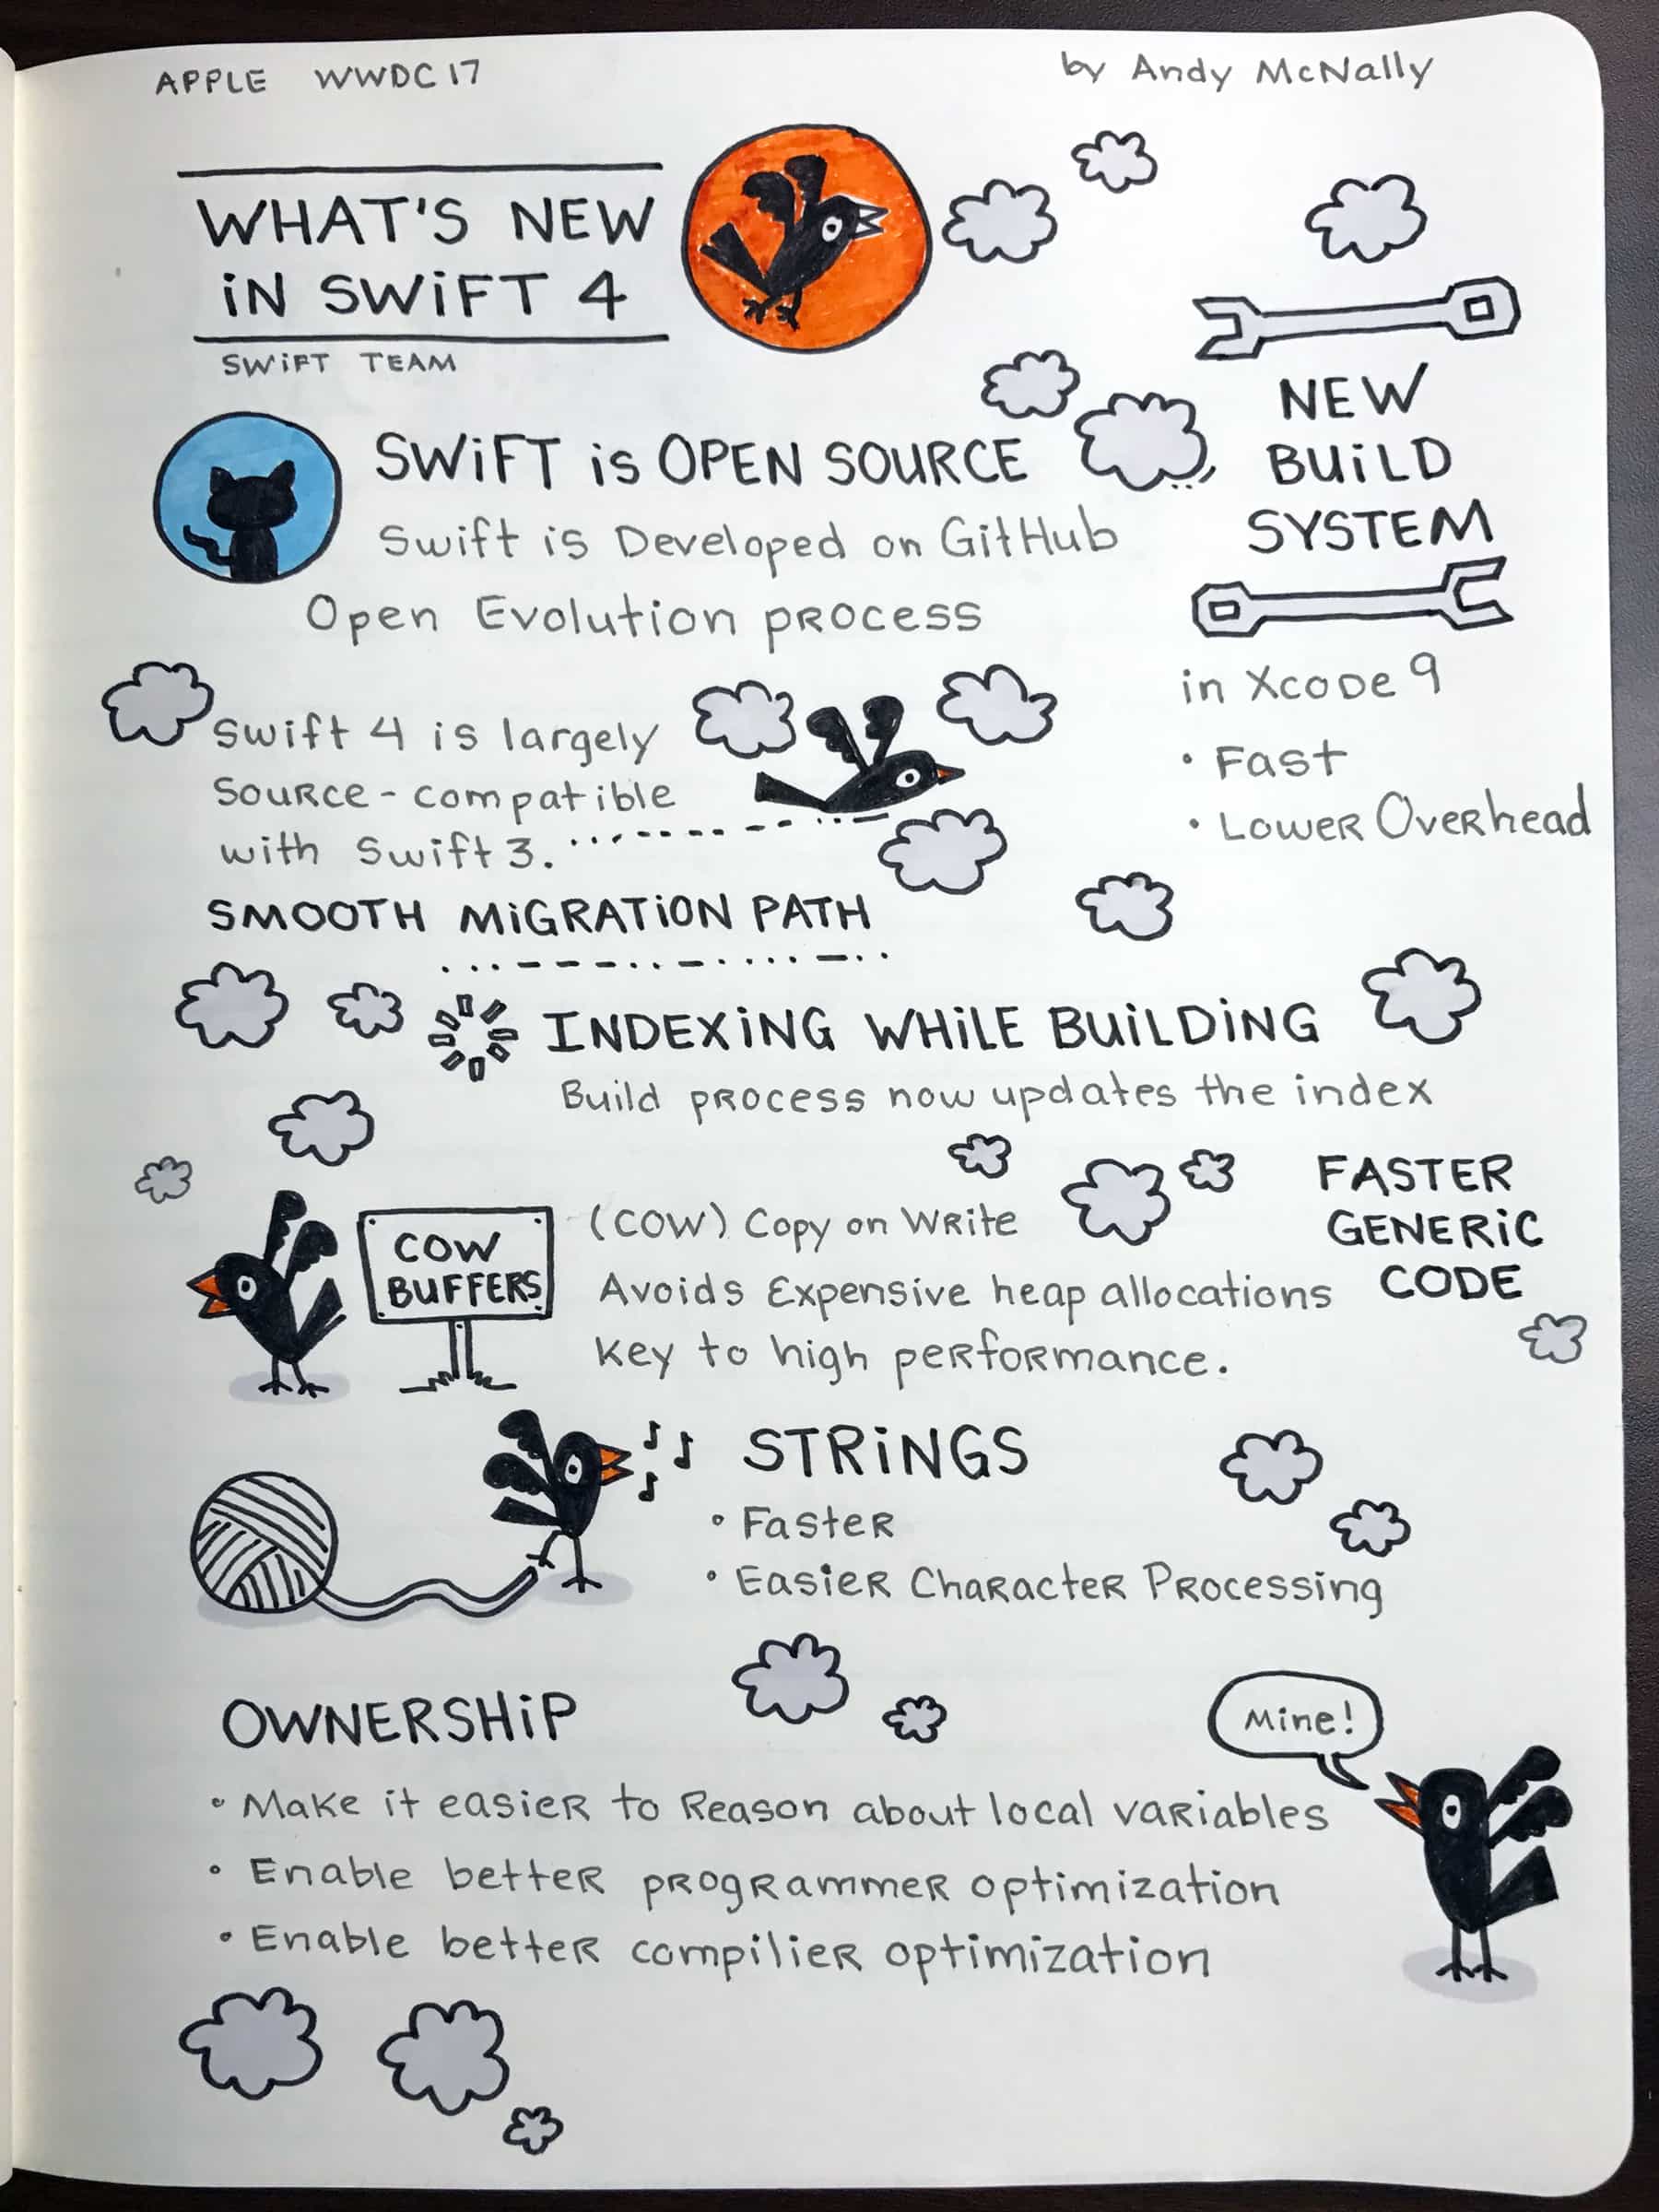 APPLE WWDC17
by Andy McNally
WHAT'S NEW
iN SWiFT 4
SWiFT TEAM
SWiFT is OPEN SOURCE
Swift is Developed on GitHub
Open Evolution process
NEW
BUiLD
SYSTEM
in Xcode 9
• Fast
• Lower Overhead
Swift 4 is largely
Source-compatible
with Swift 3.
SMOOTH MiGRATiON PATH
INDEXiNG WHiLE BUiLDiNG
Build process now updates the index
COW
BUFFERS
(COW) Copy on Write
Avoids Expensive heap allocations
Key to high performance.
FASTER
GENERiC
CODE
STRiNGS
• Faster
• Easier Character Processing
OWNERSHiP
• Make it easier to Reason about local variables
• Enable better programmer optimization
• Enable better compilier optimization
Mine!